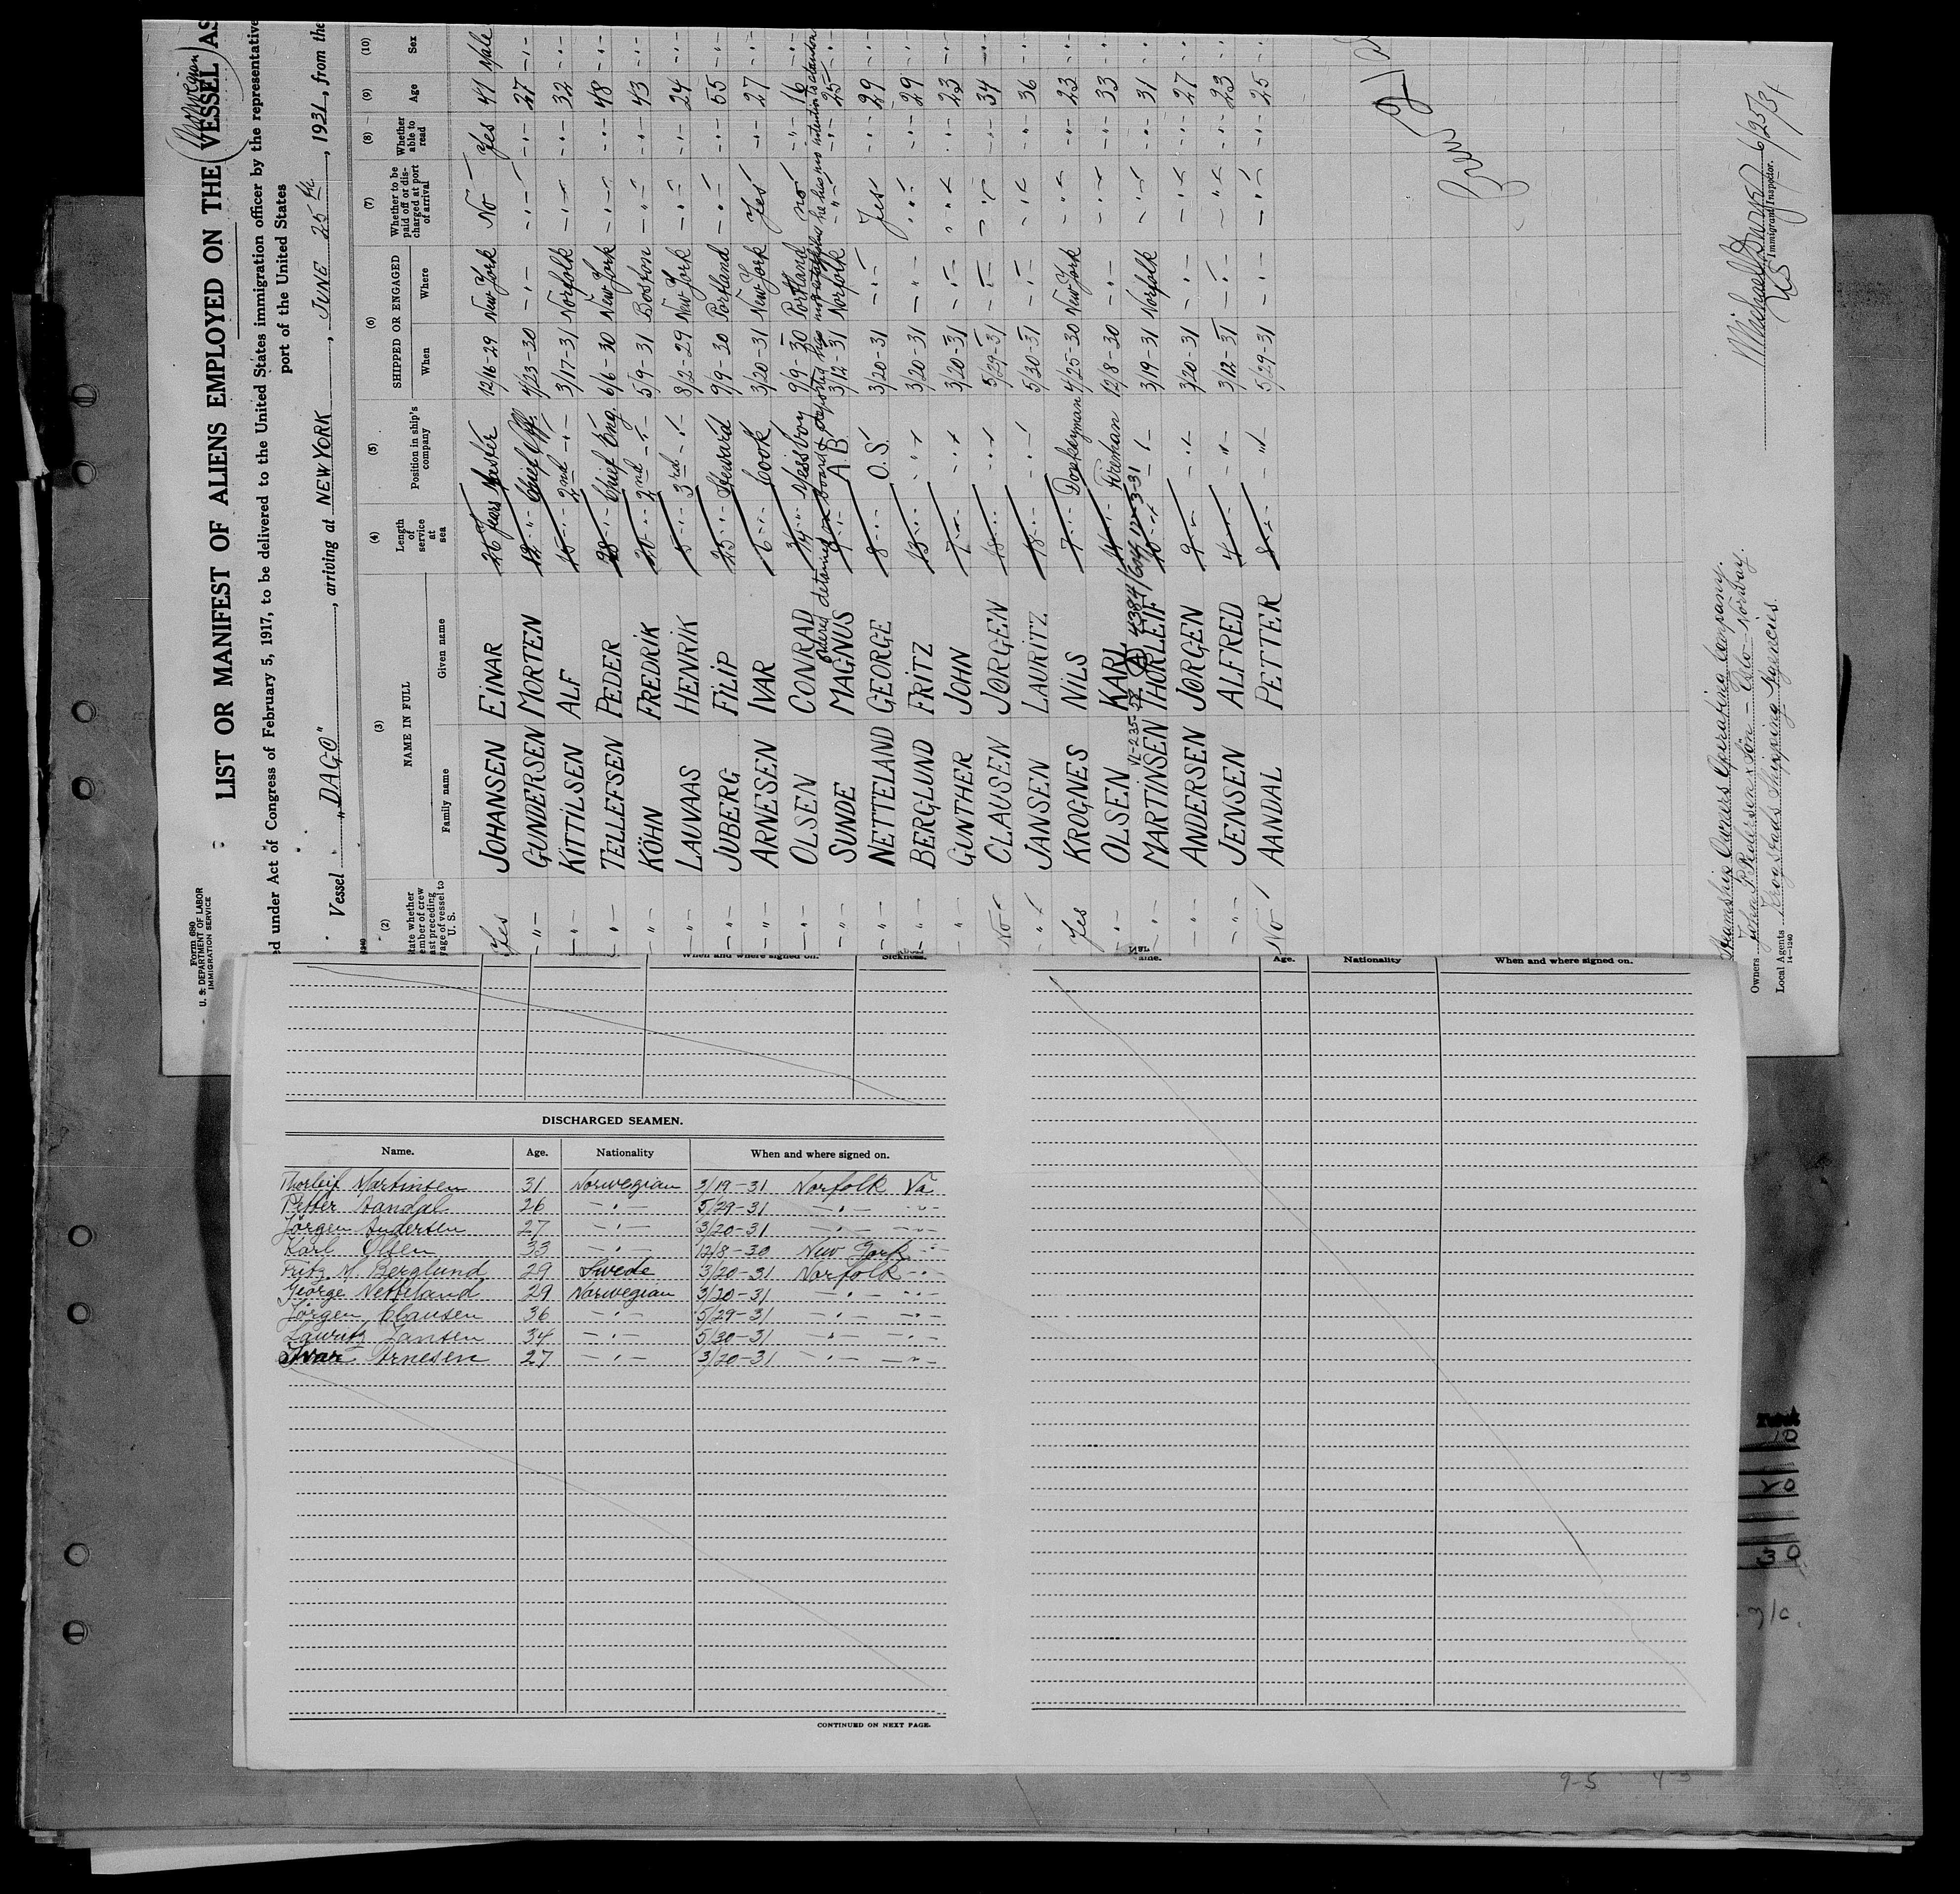 Form 680
U. S. DEPARTMENT OF LABOR
IMMIGRATION SERVICE
LIST OR MANIFEST OF ALIENS EMPLOYED ON THE VESSEL AS
(Norwegian)
ed under Act of Congress of February 5, 1917, to be delivered to the United States immigration officer by the representative
port of the United States
Vessel "DAGO", arriving at NEW YORK, JUNE 25th, 1931, from the
(2) (3) (4) (5) (6) (7) (8) (9) (10)
NAME IN FULL SHIPPED OR ENGAGED
State whether member of crew last preceding voyage of vessel to U. S. Family name Given name Length of service at sea Position in ship's company When Where Whether to be paid off or discharged at port of arrival Whether able to read Age Sex
Yes JOHANSEN EINAR 26 years Master 12/16-29 New York No Yes 41 Male
-"- GUNDERSEN MORTEN 12 -"- Chief Off. 4/23-30 -"- -"- -"- 27 -"-
-"- KITTILSEN ALF 15 -"- 2nd -"- 3/17-31 Norfolk -"- -"- 32 -"-
-"- TELLEFSEN PEDER 28 -"- Chief Eng. 6/6-30 New York -"- -"- 48 -"-
-"- KÖHN FREDRIK 20 -"- 2nd -"- 5/9-31 Boston -"- -"- 43 -"-
-"- LAUVAAS HENRIK 5 -"- 3rd -"- 8/2-29 New York -"- -"- 24 -"-
-"- JUBERG FILIP 25 -"- Steward 9/9-30 Portland -"- -"- 55 -"-
-"- ARNESEN IVAR 6 -"- Cook 3/20-31 New York Yes -"- 27 -"-
-"- OLSEN CONRAD 3/4 -"- Messboy 9/9-30 Portland no -"- 16 -"-
Ordered detained on board & deported has no he has no intention
-"- SUNDE MAGNUS 9 -"- A.B. 3/12-31 Norfolk -"- -"- 25 -"-
-"- NETTELAND GEORGE 8 -"- O.S. 3/20-31 -"- Yes -"- 29 -"-
-"- BERGLUND FRITZ 13 -"- -"- 3/20-31 -"- -"- -"- 29 -"-
-"- GUNTHER JOHN 7 -"- -"- 3/20-31 -"- -"- -"- 23 -"-
No CLAUSEN JORGEN 18 -"- -"- 5/29-31 -"- -"- -"- 34 -"-
-"- JANSEN LAURITZ 18 -"- -"- 5/30-31 -"- -"- -"- 36 -"-
Yes KROGNES NILS 7 -"- Donkeyman 4/25-30 New York -"- -"- 23 -"-
-"- OLSEN KARL 14 -"- Fireman 12/8-30 -"- -"- -"- 33 -"-
-"- MARTINSEN THORLEIF 10 -"- -"- 3/19-31 Norfolk -"- -"- 31 -"-
-"- ANDERSEN JORGEN 9 -"- -"- 3/20-31 -"- -"- -"- 27 -"-
-"- JENSEN ALFRED 4 -"- -"- 3/12-31 -"- -"- -"- 23 -"-
No AANDAL PETTER 8 -"- -"- 5/29-31 -"- -"- -"- 25 -"-
6/25/31
Immigrant Inspector.
Steamship Owners Operating Company.
Owners John P. Pedersen & Sön - Oslo - Norway.
Local Agents Shipping Agencies.
14-1240
When and where signed on. Sickness.
DISCHARGED SEAMEN.
Name. Age. Nationality When and where signed on.
Thorleif Martinsen 31 Norwegian 3/19-31 Norfolk Va
Petter Aandal 26 -"- 5/29-31 -"- -"-
Jörgen Andersen 27 -"- 3/20-31 -"- -"-
Karl Olsen 33 -"- 12/8-30 New York -"-
Fritz M Berglund 29 Swede 3/20-31 Norfolk -"-
George Netteland 29 Norwegian 3/20-31 -"- -"-
Jörgen Clausen 36 -"- 5/29-31 -"- -"-
Lauritz Jansen 34 -"- 5/30-31 -"- -"-
Ivar Arnesen 27 -"- 3/20-31 -"- -"-
CONTINUED ON NEXT PAGE.
Name. Age. Nationality When and where signed on.
3/0.
9-5 4-3